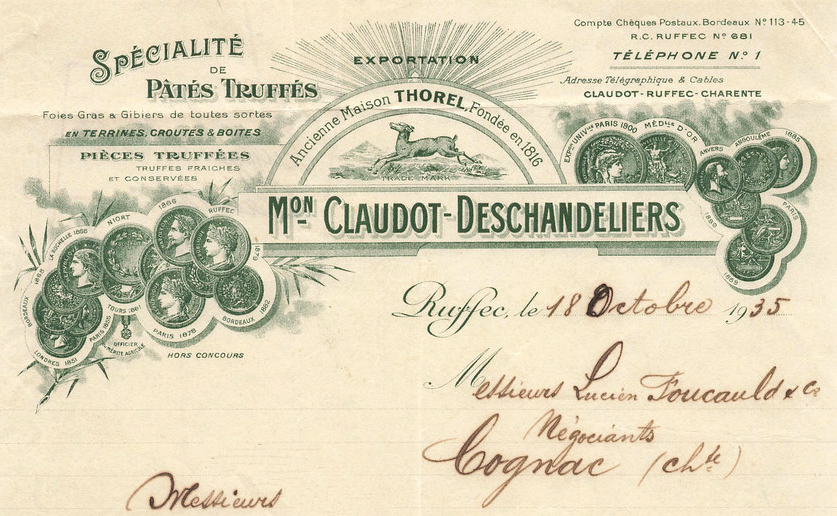 SPÉCIALITÉ
DE
PÂTÉS TRUFFÉS
Foies Gras & Gibiers de toutes sortes
EN TERRINES, CROUTES & BOITES
PIÈCES TRUFFÉES
TRUFFES FRAICHES
ET CONSERVÉES
EXPORTATION
Ancienne Maison THOREL, Fondée en 1816
TRADE MARK
Compte Chèques Postaux. Bordeaux No 113-45
R.C. RUFFEC No 681
TÉLÉPHONE No 1
Adresse Télégraphique & Cables
CLAUDOT-RUFFEC-CHARENTE
EXPon UNIVlle PARIS 1900 MÉDlle D'OR
ANVERS
ANGOULÊME
1885
PARIS
1889
MON CLAUDOT-DESCHANDELIERS
LA ROCHELLE 1866
NIORT
1866
RUFFEC
1879
BORDEAUX
TOURS
PARIS 1855
LONDRES 1851
OFFICIER
MÉRITE AGRICOLE
PARIS 1878
BORDEAUX 1882
HORS CONCOURS
Ruffec, le 18 Octobre 1935
Messieurs Lucien Foucauld & Co
Négociants
Cognac (Chte)
Messieurs